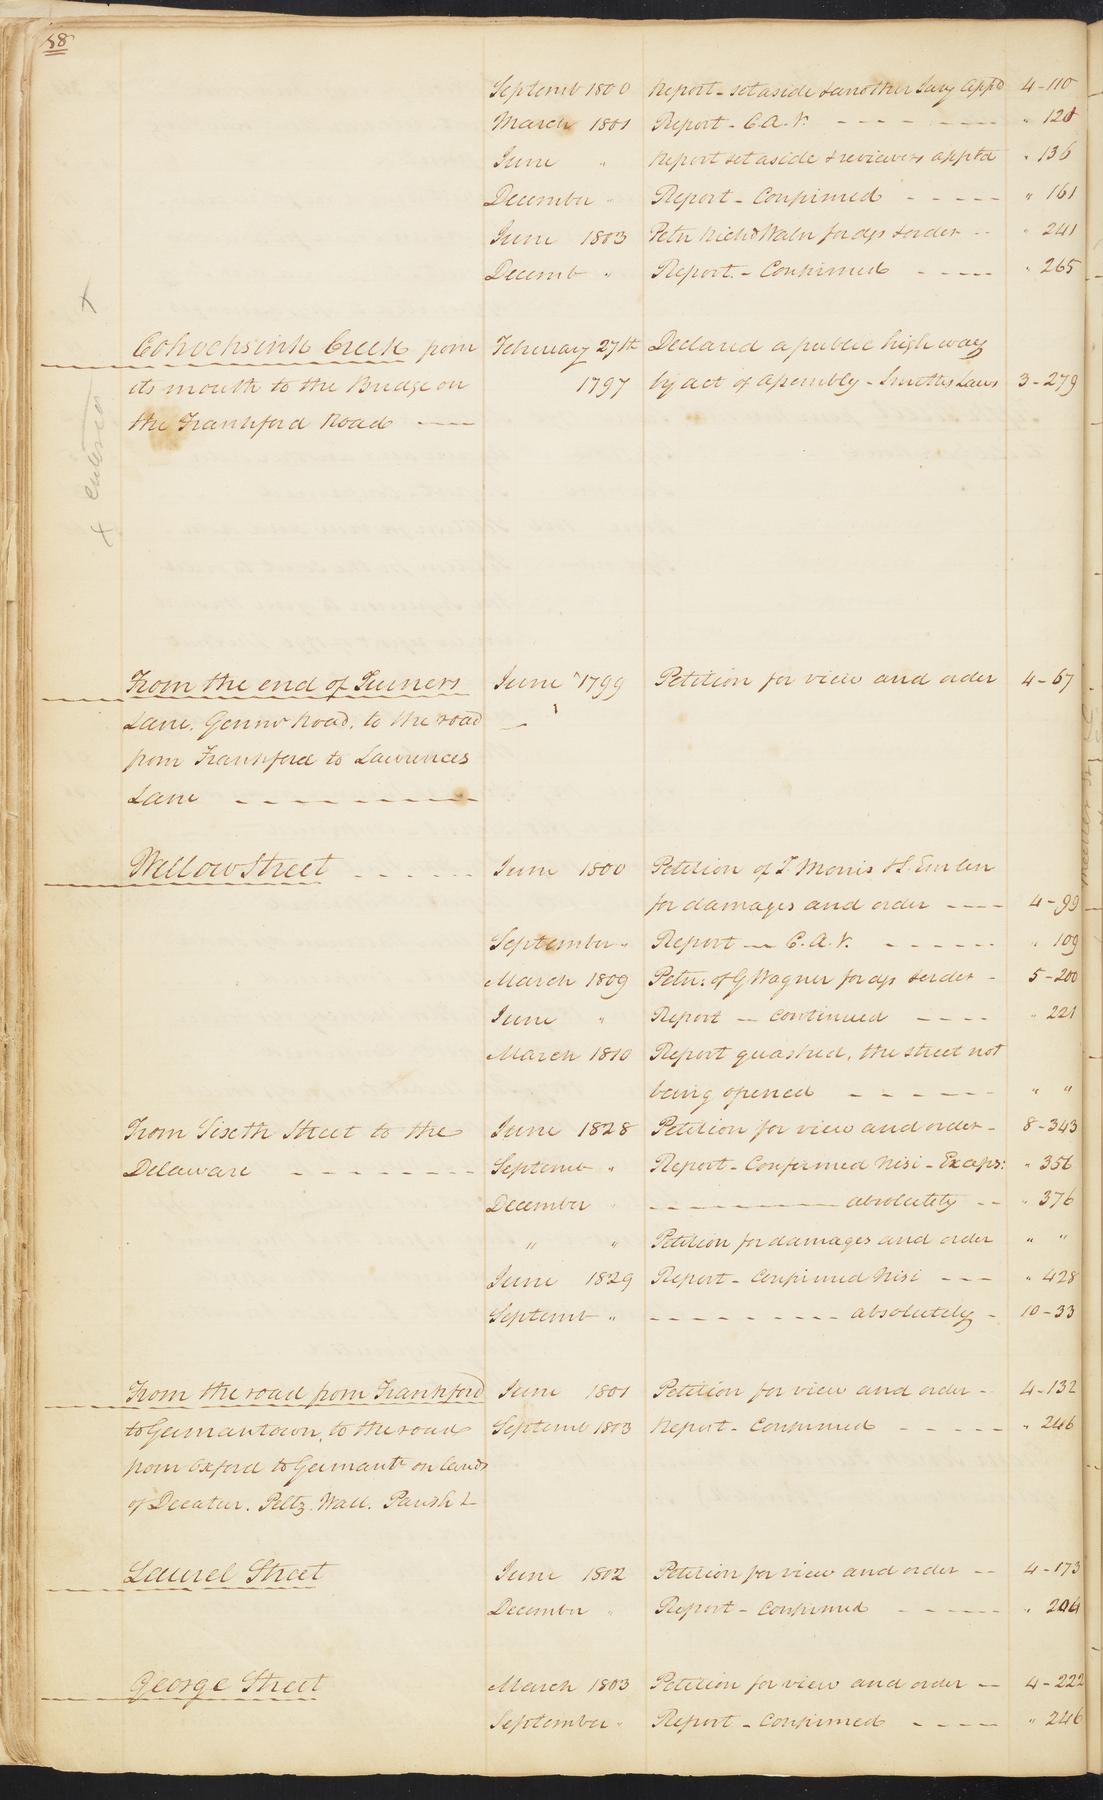 58
Septemb 1800 Report - set aside & another Jury App'd 4-110
March 1801 Report - C.A.V. " 120
June " Report set aside & reviewers appt'd " 136
December " Report - Confirmed " 161
June 1803 Petn Rich'd Waln for dgs & order " 241
Decemb " Report - Confirmed " 265
Cohochsink Creek from February 27th Declared a public high way
its mouth to the Bridge on 1797 by act of Assembly - Smiths Laws 3-279
the Frankford Road
x
x entered
From the end of Turners June 1799 Petition for view and order 4-67
Lane, Germn Road, to the road
from Frankford to Lawrences
Lane
Willow Street June 1800 Petition of T. Morris & S. Emlen
for damages and order 4-99
September " Report - C.A.V. " 109
March 1809 Petn: of G Wagner for dgs & order 5-200
June " Report - continued " 221
March 1810 Report quashed, the street not
being opened " "
From Sixth Street to the June 1828 Petition for view and order 8-343
Delaware Septemb " Report - Confirmed Nisi - Exceps: " 356
December " absolutely " 376
" " Petition for damages and order " "
June 1829 Report - Confirmed Nisi " 428
Septemb " absolutely 10-33
From the road from Frankford June 1801 Petition for view and order 4-132
to Germantown, to the road Septemb 1803 Report - Confirmed " 246
from Oxford to Germantn on lands
of Decatur, Peltz, Wall, Parish &
Laurel Street June 1802 Petition for view and order 4-173
December " Report - Confirmed " 204
George Street March 1803 Petition for view and order 4-222
September " Report - Confirmed " 246